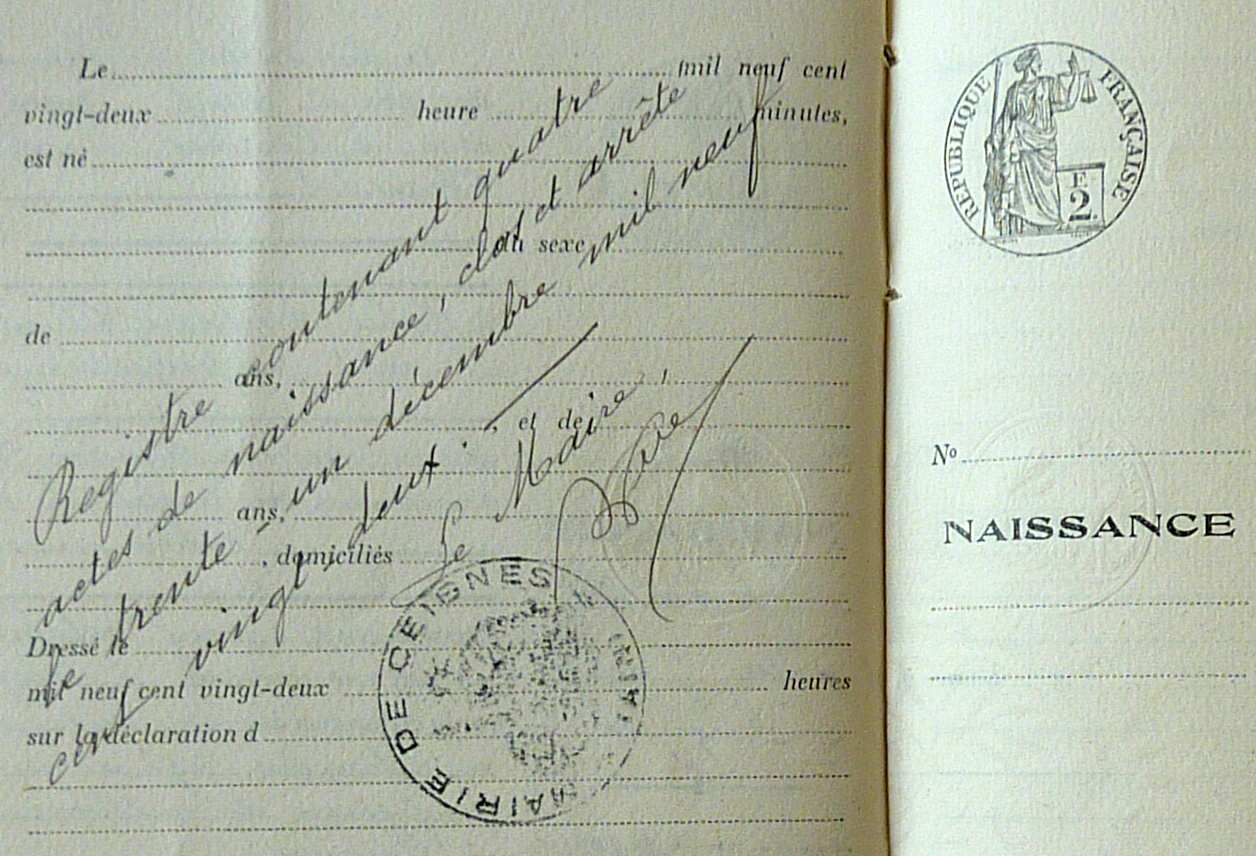 Le mil neuf cent
vingt-deux heure minutes,
est né
du sexe
de
ans,
, et de
ans,
, domiciliés
Dressé le
mil neuf cent vingt-deux heures
sur la déclaration d
Registre contenant quatre
actes de naissance, clos et arrêté
le trente-un décembre mil neuf
cent vingt deux.
Le Maire,
MAIRIE DE CEIGNES (AIN)
RÉPUBLIQUE FRANÇAISE
F
2
No
NAISSANCE